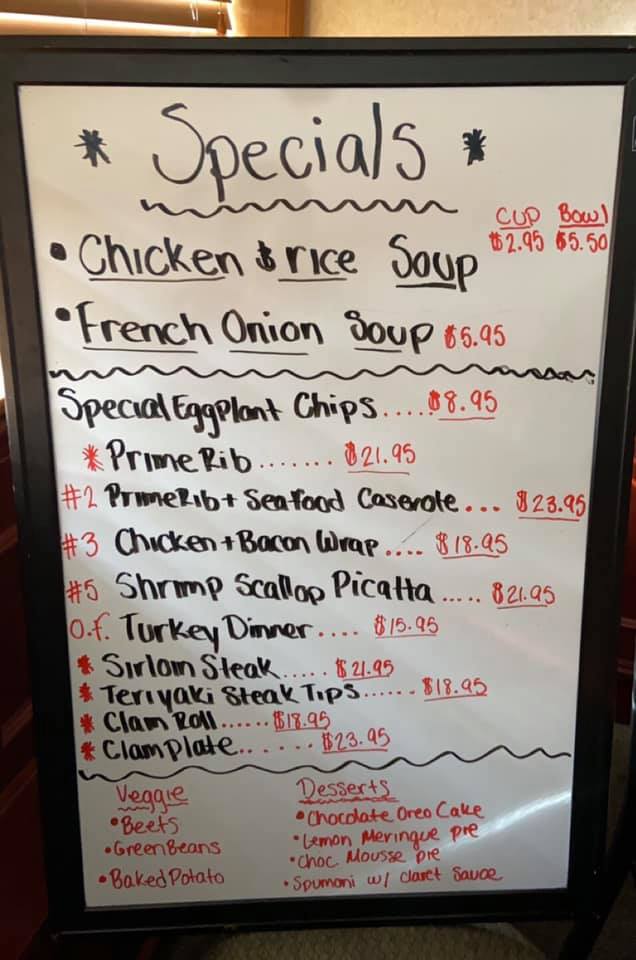 * Specials *
Cup Bowl
• Chicken & rice Soup $2.95 $5.50
• French Onion Soup $5.95
Special Eggplant Chips..... $8.95
* Prime Rib....... $21.95
#2 Prime Rib + Seafood Caserole... $23.95
#3 Chicken + Bacon Wrap.... $18.95
#5 Shrimp Scallop Picatta..... $21.95
O.f. Turkey Dinner.... $15.95
* Sirloin Steak..... $21.95
* Teriyaki Steak Tips...... $18.95
* Clam Roll...... $18.95
* Clam Plate....... $23.95
Veggie
• Beets
• Green Beans
• Baked Potato
Desserts
• Chocolate Oreo Cake
• Lemon Meringue pie
• Choc. Mousse pie
• Spumoni w/ Claret Sauce